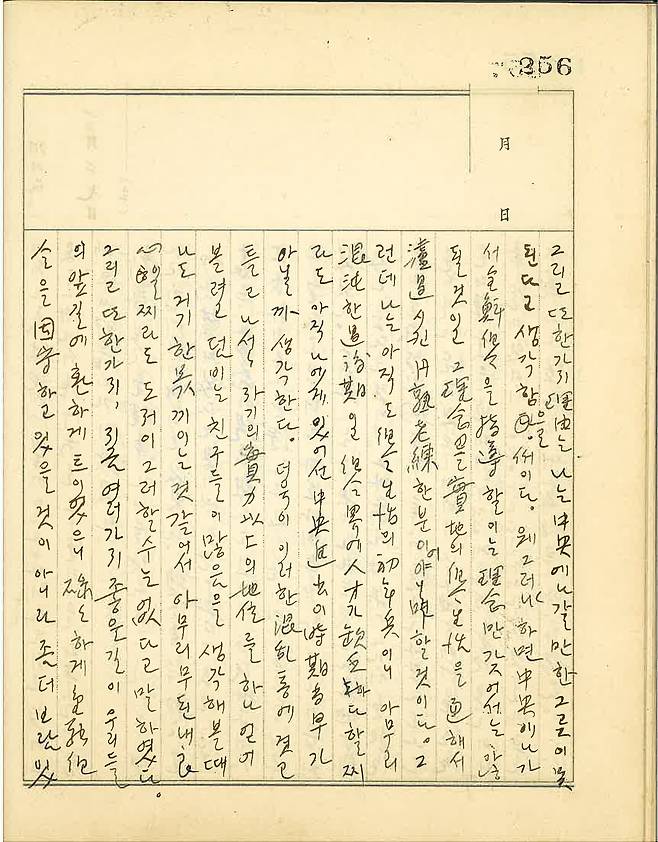 256
月
日
그리고 또 한가지 理由는 나는 中央에 나갈 만한 그릇이 못
된다고 생각함을 써이다. 왜 그러냐 하면 中央에 나가
서 全鮮 을 指導할 이는 理念만 갖어서는 안
될 것이고 그 理念을 實地의 生活을 通해서
濾過시킨 円熟老練한 분이어야 할 것이다. 그
런데 나는 아직도 生活의 初年兵이니 아무리
混沌한 過渡期인 組合界에 人才가 缺乏하다 할찌
라도 아직 나에게 있어선 中央進出이 時期尙早가
아닐까 생각한다. 더욱이 이러한 混乱통에 겻고
틀고 나서서 자기의 實力以上의 地位를 하나 얻어
볼려고 덤비는 친구들이 많음을 생각해볼 때
나도 거기 한목 끼이는 것 같어서 아무리 무된 내 良
心일찌라도 도저이 그러할 수는 없다고 말하였다.
그리고 또 한가지, 지금 여러가지 좋은 길이 우리들
의 앞길에 환하게 트이었으니 하게
을 固守하고 있을 것이 아니라 좀더 보람있